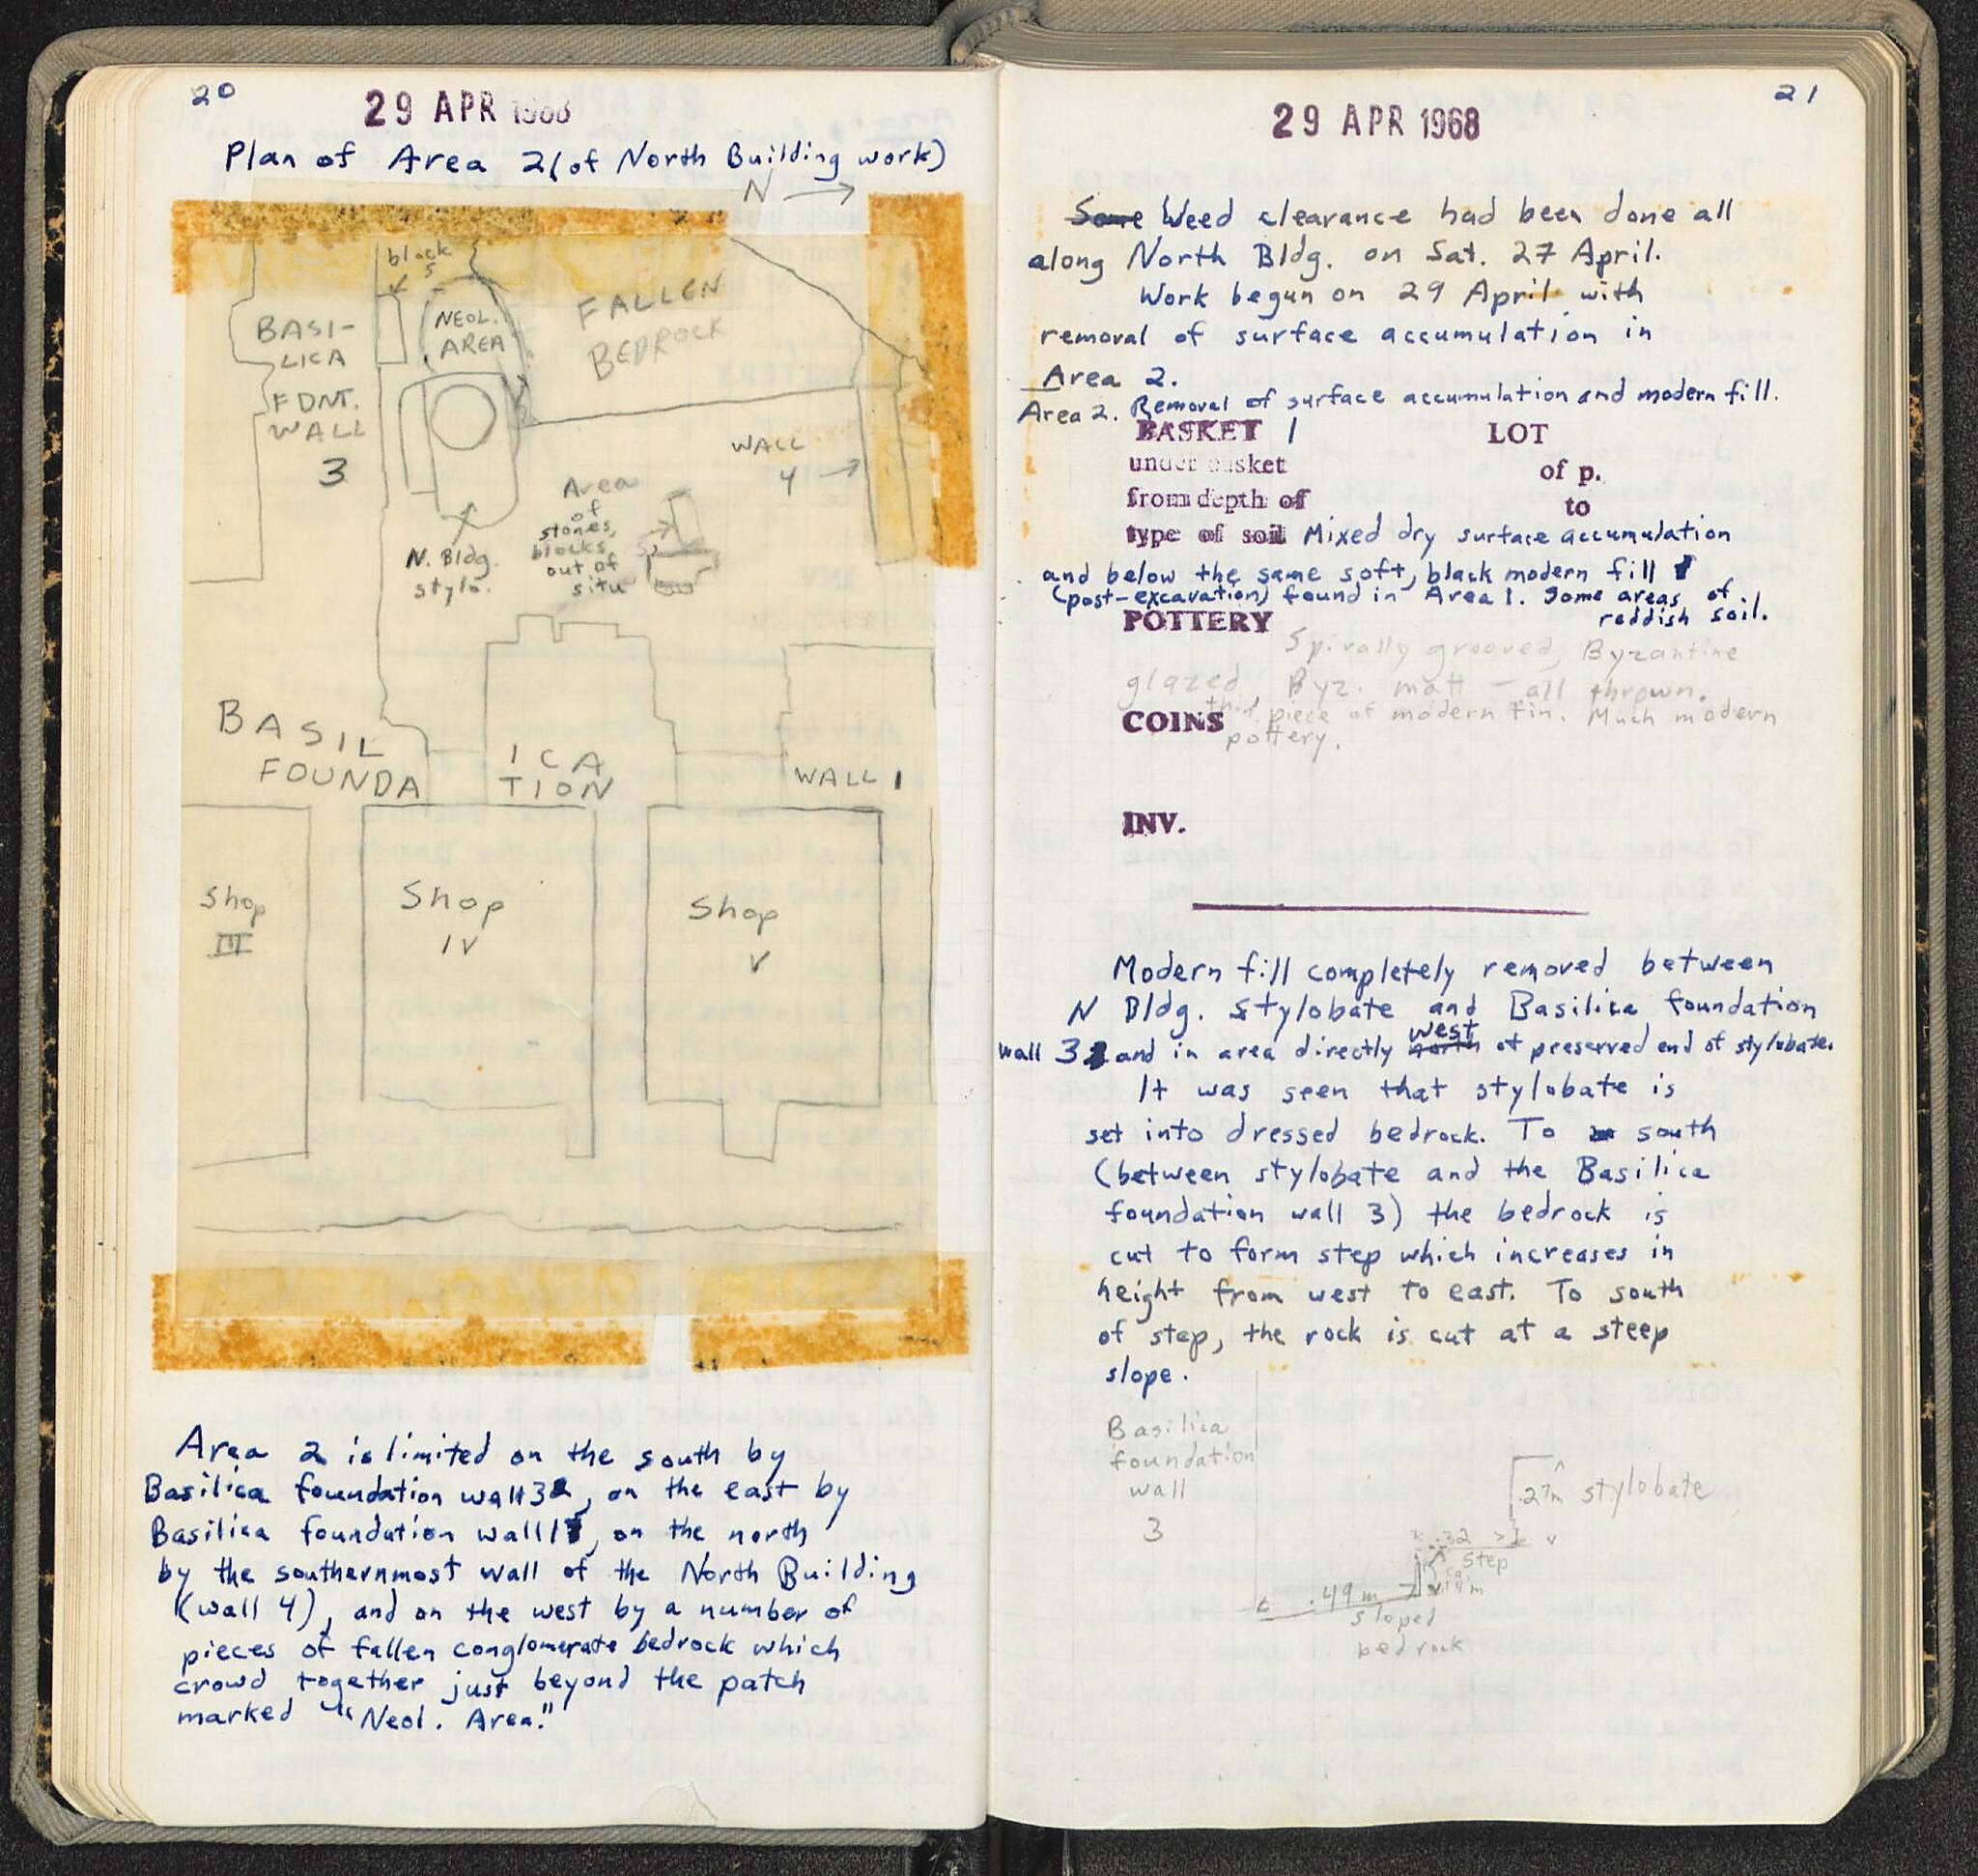 20
29 APR 1968
Plan of Area 2 (of North Building work)
N
blocks
BASI-
LICA
FDNT.
WALL
3
NEOL.
AREA
FALLEN
BEDROCK
WALL
4
Area
of
stones,
blocks,
out of
situ
N. Bldg.
stylo.
BASIL ICA
FOUNDA TION
WALL 1
Shop
III
Shop
IV
Shop
V
Area 2 is limited on the south by
Basilica foundation wall 3, on the east by
Basilica foundation wall 1, on the north
by the southernmost wall of the North Building
(wall 4), and on the west by a number of
pieces of fallen conglomerate bedrock which
crowd together just beyond the patch
marked "Neol. Area."
21
29 APR 1968
Some Weed clearance had been done all
along North Bldg. on Sat. 27 April.
Work begun on 29 April with
removal of surface accumulation in
Area 2.
Area 2. Removal of surface accumulation and modern fill.
BASKET 1 LOT
under basket of p.
from depth of to
type of soil Mixed dry surface accumulation
and below the same soft, black modern fill
(post-excavation) found in Area 1. Some areas of
reddish soil.
POTTERY Spirally grooved, Byzantine
glazed, Byz. matt - all thrown.
COINS third piece of modern tin. Much modern
pottery.
INV.
Modern fill completely removed between
N Bldg. stylobate and Basilica foundation
wall 3 and in area directly north west of preserved end of stylobate.
It was seen that stylobate is
set into dressed bedrock. To south
(between stylobate and the Basilica
foundation wall 3) the bedrock is
cut to form step which increases in
height from west to east. To south
of step, the rock is cut at a steep
slope.
Basilica
foundation
wall
3
.27m stylobate
.32
step
.49 m
sloped
bedrock